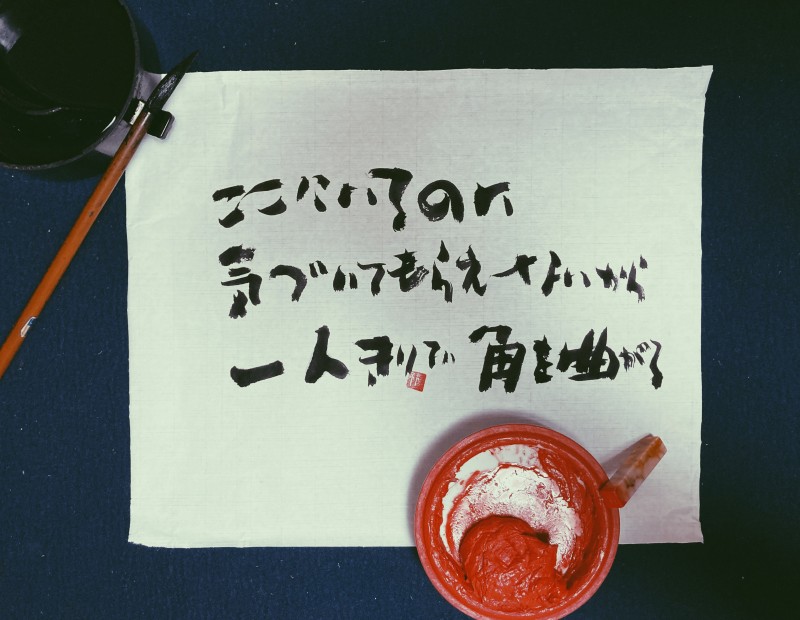 ここにいるのに
気づいてもらえないから
一人きりで角を曲がる